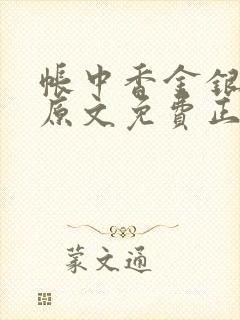 帳中香金銀
原文免費正
蒙文通